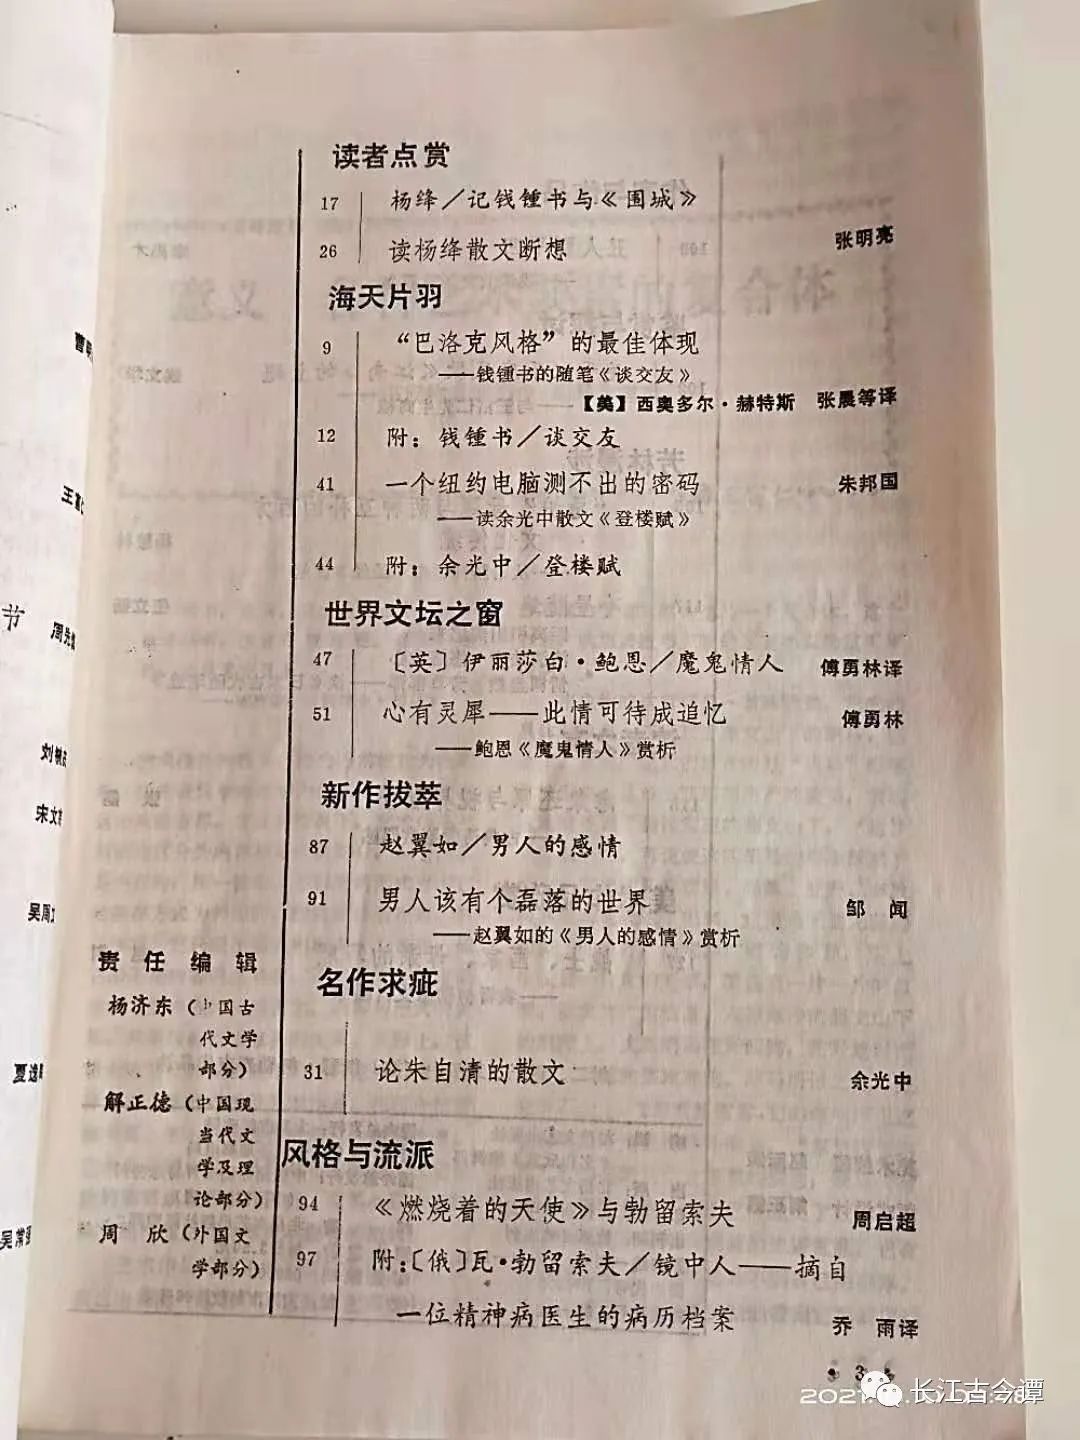 读者点赏
17 杨绛／记钱锺书与《围城》
26 读杨绛散文断想 张明亮
海天片羽
9 “巴洛克风格”的最佳体现
——钱锺书的随笔《谈交友》
【美】西奥多尔·赫特斯 张晨等译
12 附：钱锺书／谈交友
41 一个纽约电脑测不出的密码 朱邦国
——读余光中散文《登楼赋》
44 附：余光中／登楼赋
世界文坛之窗
47 〔英〕伊丽莎白·鲍恩／魔鬼情人 傅勇林译
51 心有灵犀——此情可待成追忆 傅勇林
——鲍恩《魔鬼情人》赏析
新作拔萃
87 赵翼如／男人的感情
91 男人该有个磊落的世界 邹 闻
——赵翼如的《男人的感情》赏析
名作求疵
31 论朱自清的散文 余光中
风格与流派
94 《燃烧着的天使》与勃留索夫 周启超
97 附：〔俄〕瓦·勃留索夫／镜中人——摘自
一位精神病医生的病历档案 乔 雨译
责任编辑
杨济东（中国古
代文学
部分）
解正德（中国现
当代文
学及理
论部分）
周 欣（外国文
学部分）
3
节
刘
宋文
吴周
夏选
吴常
长江古今谭